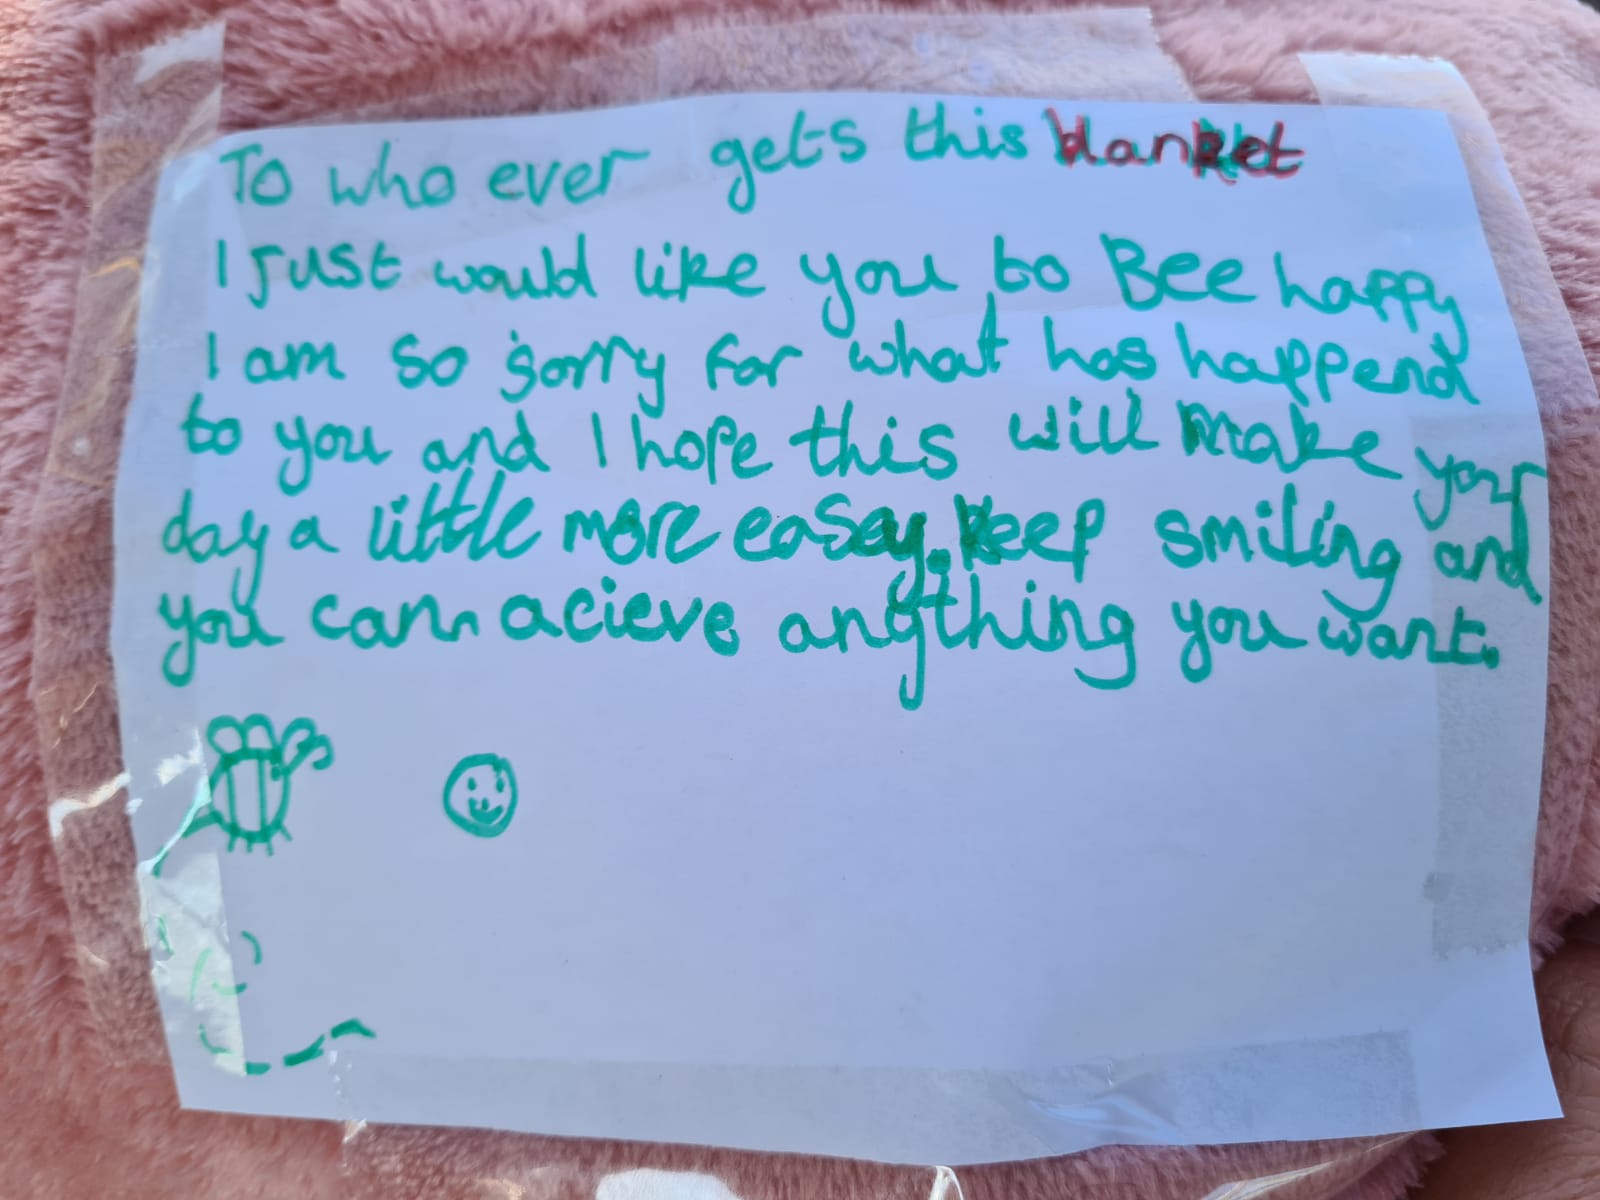 To who ever gets this blanket
I just would like you to Bee happy
I am so sorry for what has happend
to you and I hope this will make your
day a little more easey. keep smiling and
you can acieve anything you want.